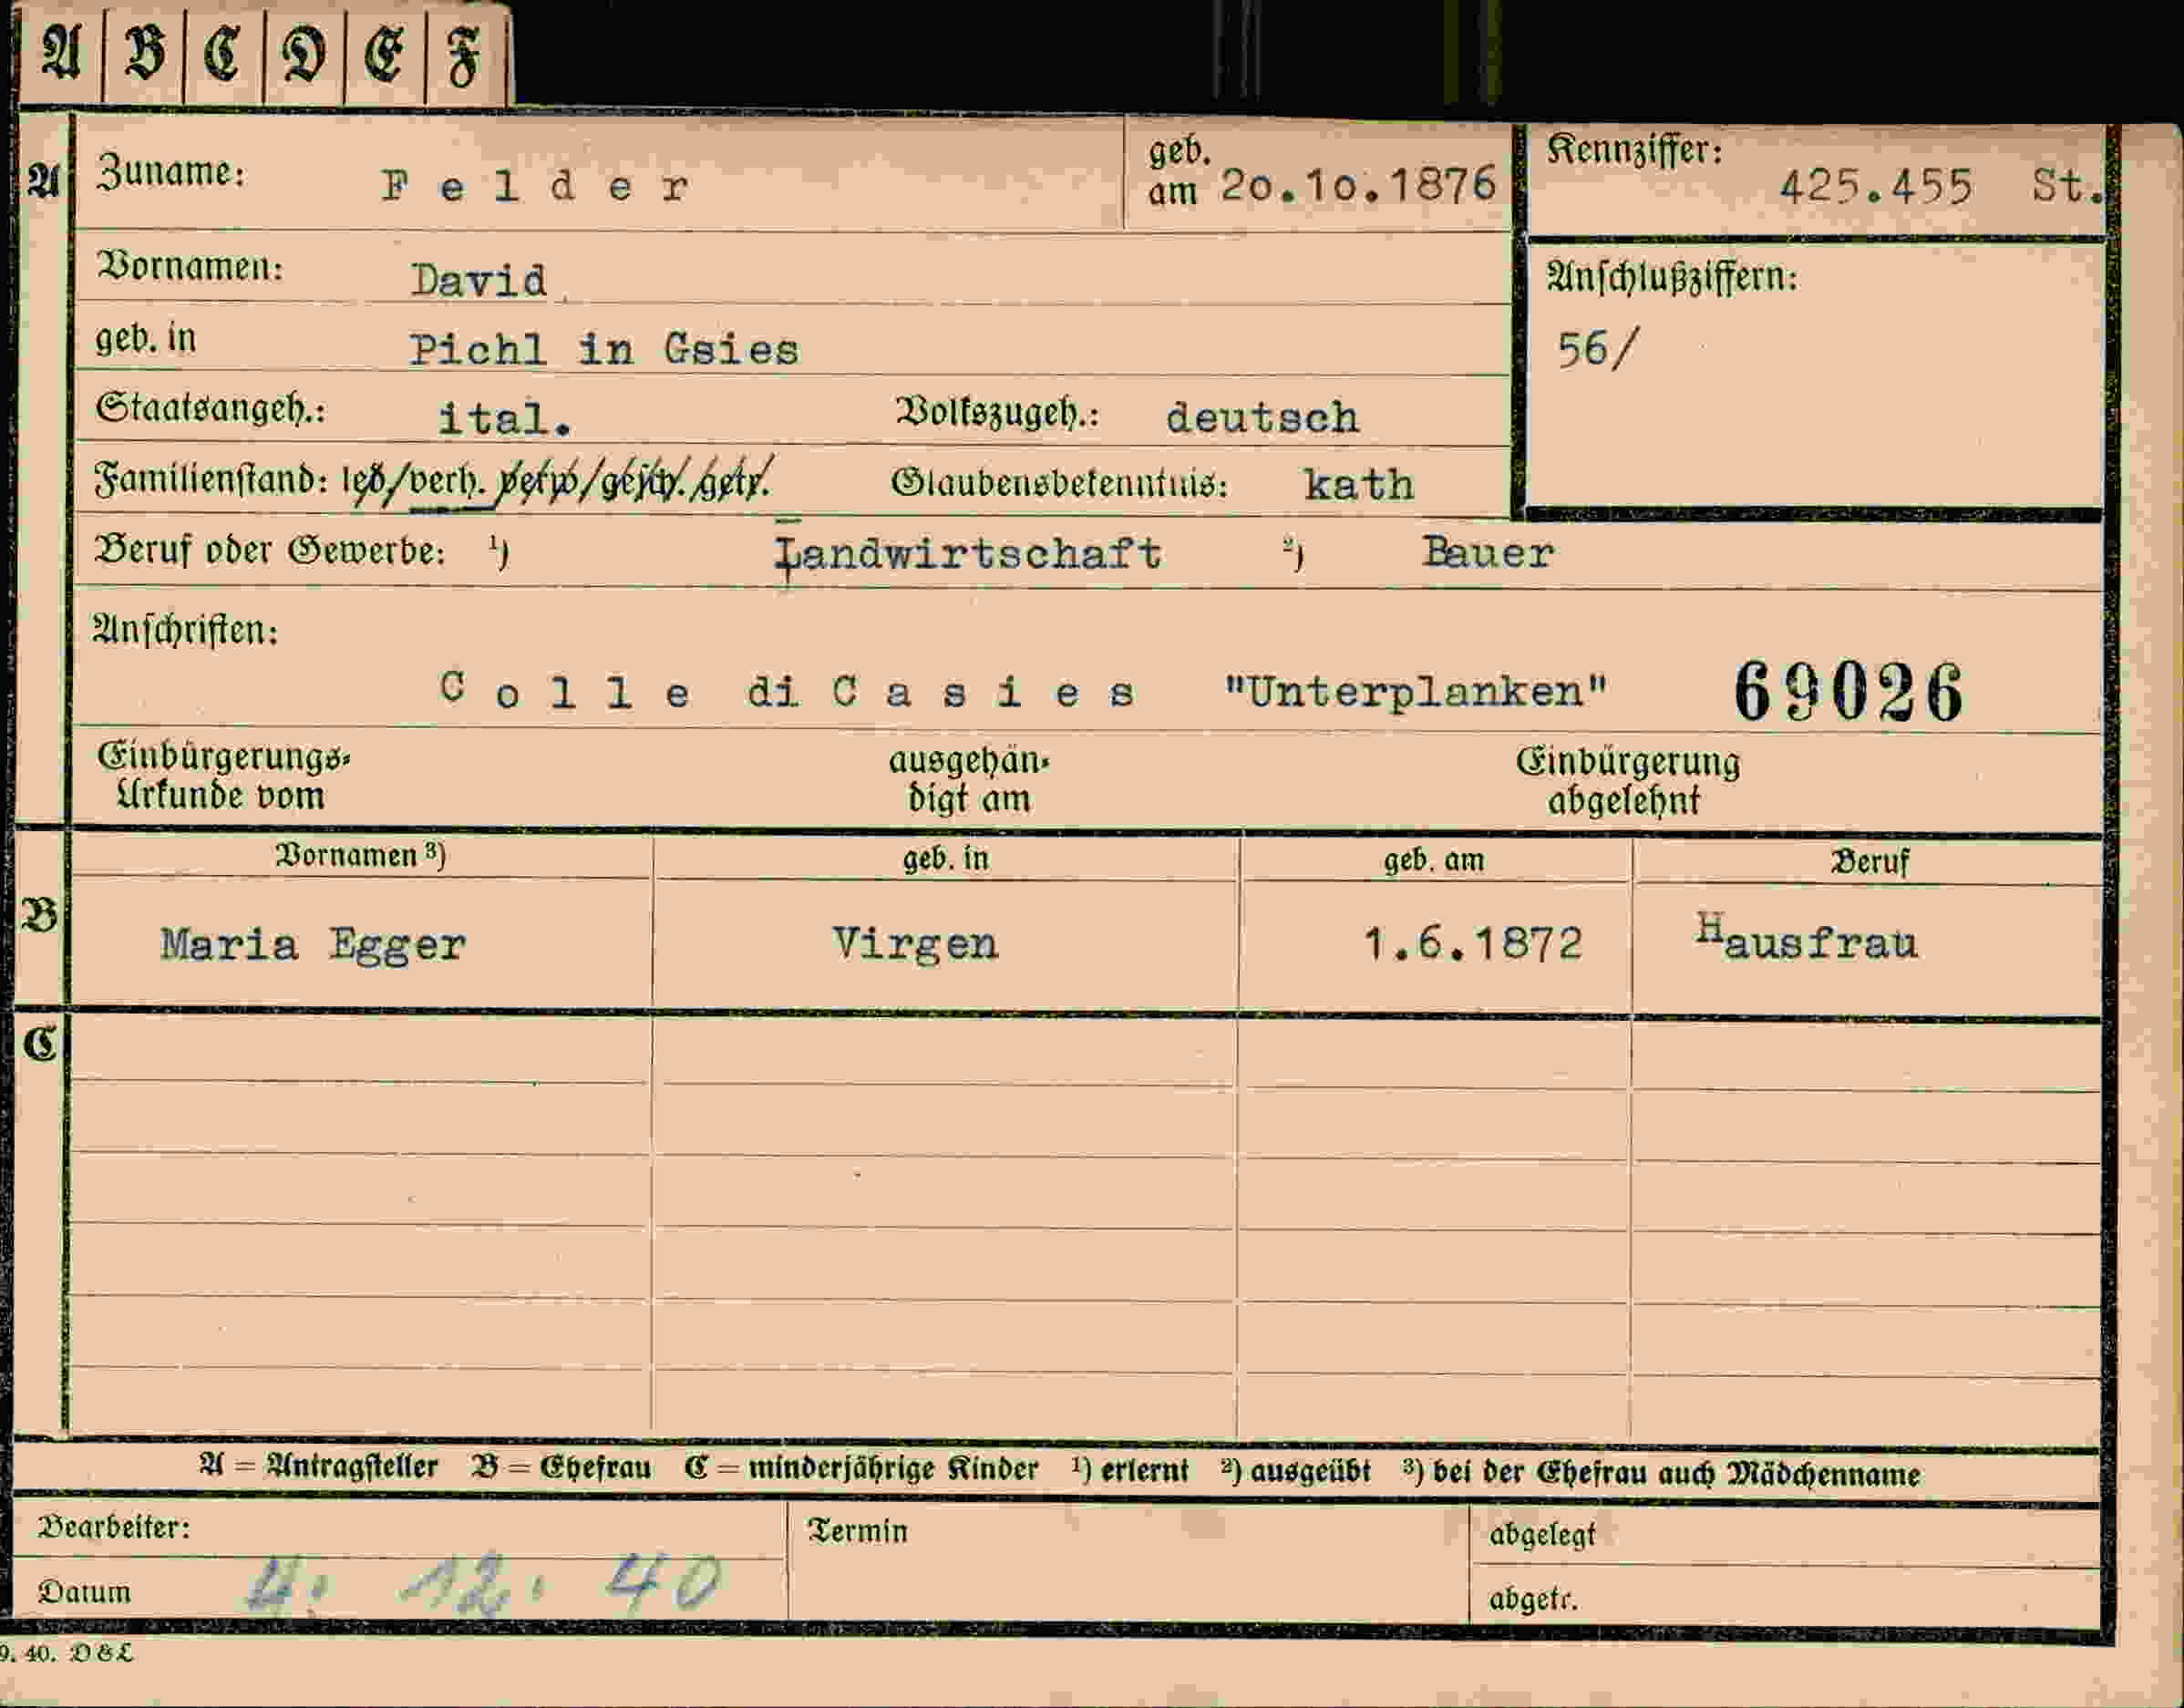 A B C D E F
A Zuname: Felder geb. am 20.10.1876 Kennziffer: 425.455 St.
Vornamen: David Anschlußziffern:
geb. in Pichl in Gsies 56/
Staatsangeh.: ital. Volkszugeh.: deutsch
Familienstand: led/verh. verw/gesch./getr. Glaubensbekenntnis: kath
Beruf oder Gewerbe: 1) Landwirtschaft 2) Bauer
Anschriften:
Colle di Casies "Unterplanken" 69026
Einbürgerungs- ausgehän- Einbürgerung
Urkunde vom digt am abgelehnt
Vornamen 3) geb. in geb. am Beruf
B Maria Egger Virgen 1.6.1872 Hausfrau
C
A = Antragsteller B = Ehefrau C = minderjährige Kinder 1) erlernt 2) ausgeübt 3) bei der Ehefrau auch Mädchenname
Bearbeiter: Termin abgelegt
Datum 4. 12. 40 abgetr.
9. 40. D&L